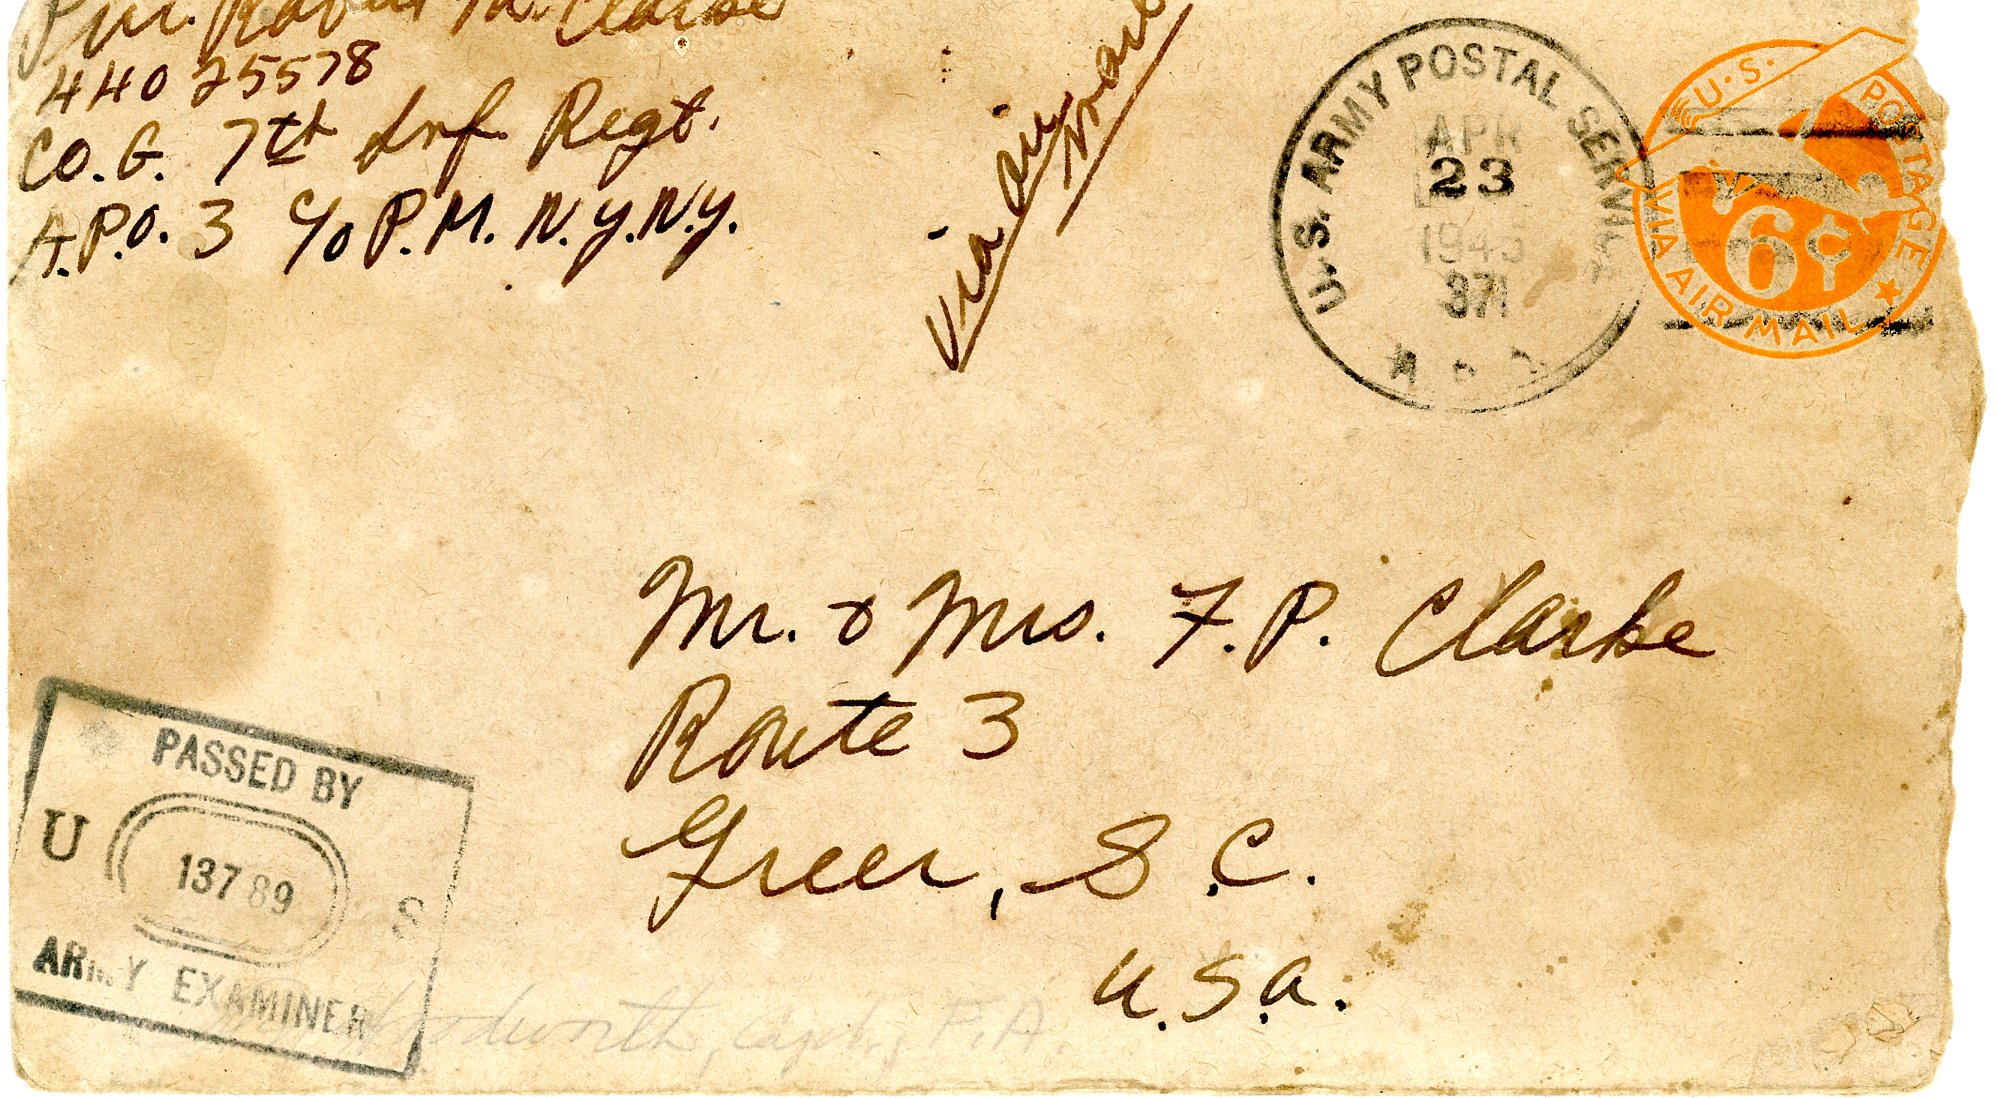 Pvt. Robert M. Clarke
44025578
Co. G. 7th Inf. Regt.
A.P.O. 3 c/o P.M. N.Y. N.Y.
via air mail
U.S. ARMY POSTAL SERVICE
APR
23
1945
371
U.S. POSTAGE
6¢
VIA AIR MAIL
Mr. & Mrs. F. P. Clarke
Route 3
Greer, S.C.
U.S.A.
PASSED BY
U 13789 S
ARMY EXAMINER
Woodworth, Capt., F.A.